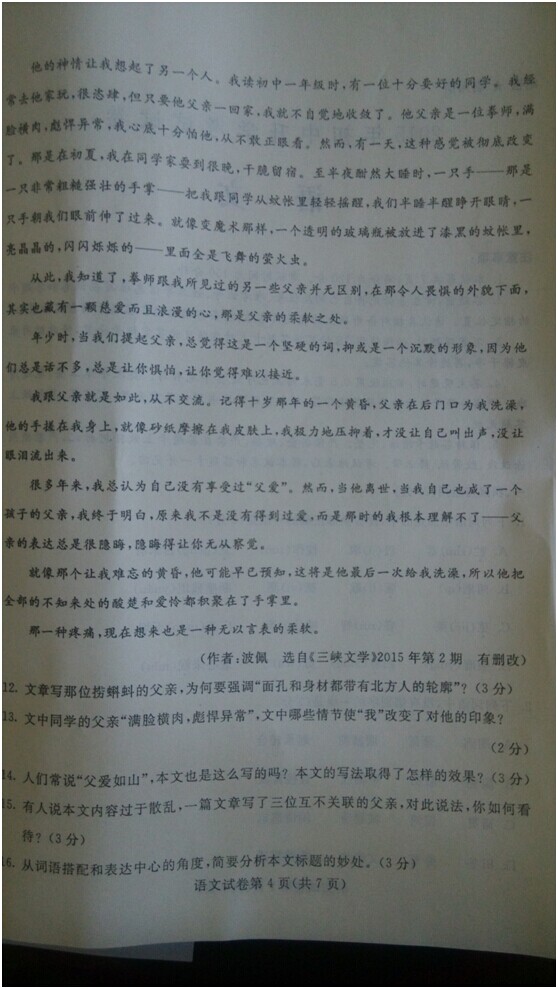 他的神情让我想起了另一个人。我读初中一年级时,有一位十分要好的同学。我经
常去他家玩,很恣肆,但只要他父亲一回家,我就不自觉地收敛了。他父亲是一位拳师,满
脸横肉,彪悍异常,我心底十分怕他,从不敢正眼看。然而,有一天,这种感觉被彻底改变
了。那是在初夏,我在同学家耍到很晚,干脆留宿。至半夜酣然大睡时,一只手——那是
一只非常粗糙强壮的手掌——把我跟同学从蚊帐里轻轻摇醒,我们半睡半醒睁开眼睛,一
只手朝我们眼前伸了过来。就像变魔术那样,一个透明的玻璃瓶被放进了漆黑的蚊帐里,
亮晶晶的,闪闪烁烁的——里面全是飞舞的萤火虫。
从此,我知道了,拳师跟我所见过的另一些父亲并无区别,在那令人畏惧的外貌下面,
其实也藏有一颗慈爱而且浪漫的心,那是父亲的柔软之处。
年少时,当我们提起父亲,总觉得这是一个坚硬的词,抑或是一个沉默的形象,因为他
们总是话不多,总是让你惧怕,让你觉得难以接近。
我跟父亲就是如此,从不交流。记得十岁那年的一个黄昏,父亲在后门口为我洗澡,
他的手搓在我身上,就像砂纸摩擦在我皮肤上,我极力地压抑着,才没让自己叫出声,没让
眼泪流出来。
很多年来,我总认为自己没有享受过“父爱”。然而,当他离世,当我自己也成了一个
孩子的父亲,我终于明白,原来我不是没有得到过爱,而是那时的我根本理解不了——父
亲的表达总是很隐晦,隐晦得让你无从察觉。
就像那个让我难忘的黄昏,他可能早已预知,这将是他最后一次给我洗澡,所以他把
全部的不知来处的酸楚和爱怜都积聚在了手掌里。
那一种疼痛,现在想来也是一种无以言表的柔软。
(作者:波佩 选自《三峡文学》2015年第2期 有删改)
12. 文章写那位捞蝌蚪的父亲,为何要强调“面孔和身材都带有北方人的轮廓”?(3分)
13. 文中同学的父亲“满脸横肉,彪悍异常”,文中哪些情节使“我”改变了对他的印象?
(2分)
14. 人们常说“父爱如山”,本文也是这么写的吗?本文的写法取得了怎样的效果?(3分)
15. 有人说本文内容过于散乱,一篇文章写了三位互不关联的父亲,对此说法,你如何看
待?(3分)
16. 从词语搭配和表达中心的角度,简要分析本文标题的妙处。(3分)
语文试卷第4页(共7页)